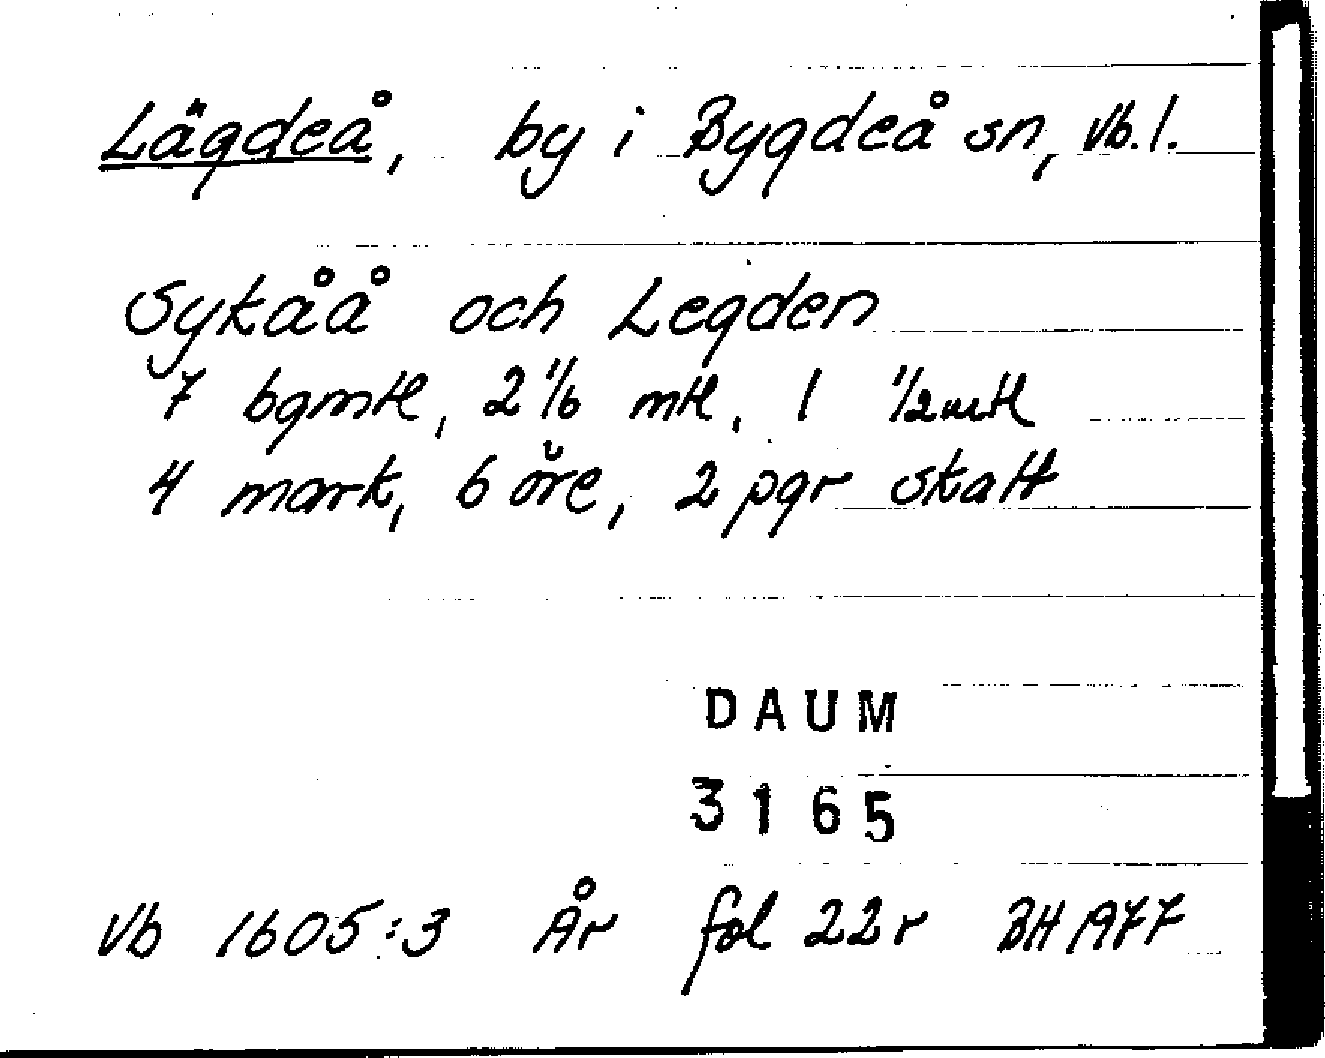 Lägdeå, by i Bygdeå sn, Vb. l.
Sykåå och Legden
7 bgmtl, 2 1/6 mtl, 1 1/2 mtl
4 mark, 6 öre, 2 pgr skatt
DAUM
3165
Vb 1605:3 År fol 22r BH 1977